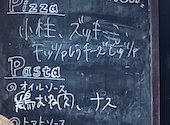 Pizza
小柱、ズッキーニ
モッツァレラチーズピッツァ
Pasta
◎オイルソース
鶏むね肉、ナス
◎トマトソース